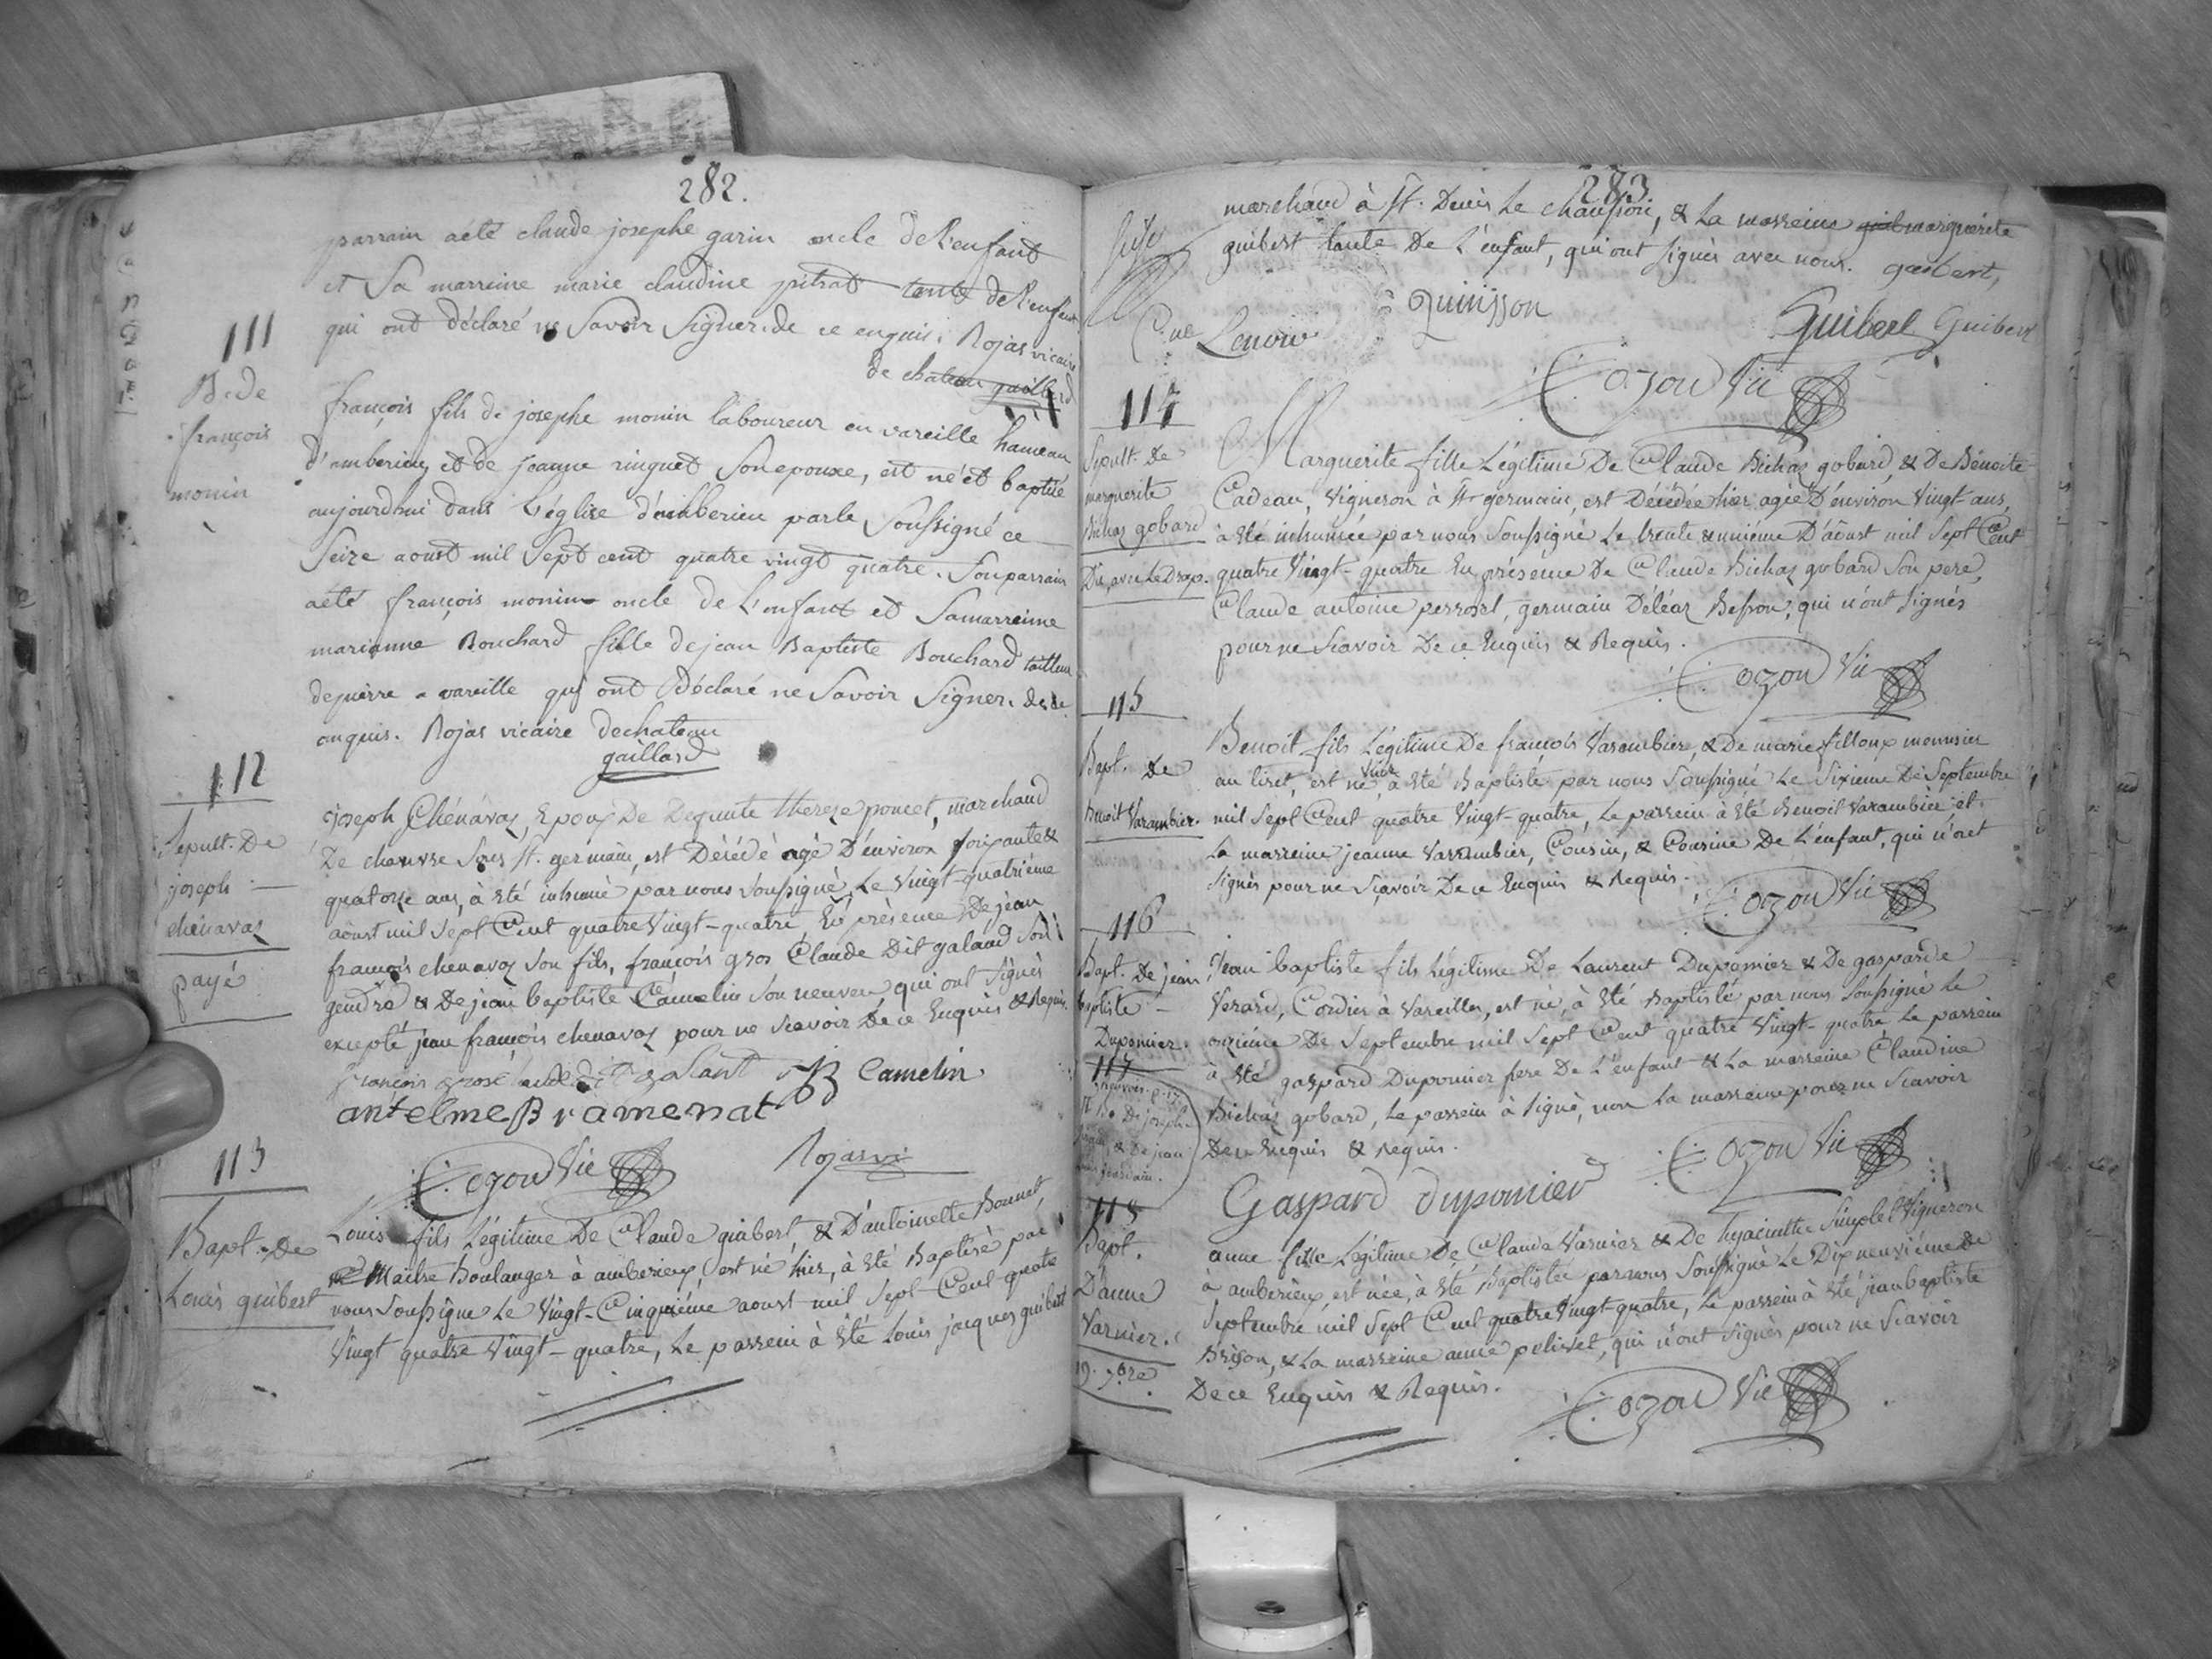 282.
parrain aété claude josephe garin oncle de l'enfant
et Sa marreine marie claudine pitrat tante de l'enfant
qui ont déclaré ne Savoir Signer. de ce enquis. Rojas vicaire
de chateau gaillard
111
B. de
françois
monin
françois fils de josephe monin laboureur en vareille hameau
d'amberieu et de jeanne ringuet Son epouse, est né et baptisé
aujourdhui dans L'église d'amberieu par le Soussigné ce
Seize aoust mil Sept cent quatre vingt quatre. Son parrain
aété françois monin oncle de L'enfant et Sa marreine
marianne Bouchard fille de jean Baptiste Bouchard tailleur
de pierre a vareille qui ont Déclaré ne Savoir Signer. de ce
enquis. Rojas vicaire de chateau
gaillard
112
Sepult. De
joseph
chenavaz
payé
joseph Chénavaz, Epoux De Defunte thereze poncet, marchand
De chanvre Sous St. germain, est Décédé agé D'environ soixante &
quatorze ans, à été inhumé par nous Soussigné Le Vingt-quatriéme
aôust mil Sept Cent quatre Vingt-quatre, En présence De jean
françois chenavaz Son fils, françois gros Claude Dit galand Son
gendre & De jean baptiste Camelin Son neuveu, qui ont Signés
excepté jean françois chenavaz pour ne Scavoir De ce Enquis & Requis.
françois gros claude dit galant JB Camelin
antelme Bramenat
Cozon Vic
Rojas vic
113
Bapt. De
Louis guibert
Louis fils Légitime De Claude guibert & D'antoinette Bonnet,
Maitre Boulanger à amberieux, est né hier, à été Baptisé par
nous Soussigné Le Vingt-Cinquiéme aoust mil Sept-Cent quatre
Vingt quatre Vingt-quatre, Le parrein à été Louis jacques guibert
283
marchand à St. Denis Le chausson, & La marreine guil marguerite
guibert tante De L'enfant, qui ont Signés avec nous. guibert,
Quinsson
Lenoir
Guibert Guibert
Cozon Vic
114
Sepult. De
marguerite
Bichaz gobard
Marguerite fille Légitime De Claude Bichaz gobard & De Benoite
Cadeau, Vigneron à St. germain, est Décédée hier agée D'environ Vingt ans,
à été inhumée par nous Soussigné Le trente & uniéme D'aôust mil Sept Cent
quatre Vingt-quatre En présence De Claude Bichaz gobard Son pere,
Claude antoine perrost, germain Déléaz Besson, qui n'ont Signés
pour ne Scavoir De ce Enquis & Requis.
Cozon Vic
115
Bapt. De
Benoit Varambier.
Benoit fils Légitime De françois Varambier, & De marie filloux menuisier
au tiret, est né hier, à été Baptisé par nous Soussigné Le Sixieme De Septembre
mil Sept Cent quatre Vingt-quatre, Le parrein à été Benoit Varambier et
La marreine jeanne Varambier, Cousin, & Cousine De L'enfant, qui n'ont
Signés pour ne Scavoir De ce Enquis & Requis.
Cozon Vic
116
Bapt. De jean
baptiste
Duponier.
Jean baptiste fils Légitime De Laurent Duponier & De gasparde
Verard, Cordier à Vareilles, est né, à été Baptisé par nous Soussigné Le
onziéme De Septembre mil Sept Cent quatre Vingt-quatre Le parrein
à été gaspard Duponier frere De L'enfant & La marreine Claudine
Bichaz gobard, Le parrein à Signé, non La marreine pour ne Scavoir
De ce Enquis & Requis.
Cozon Vic
Gaspard Duponier
117
De joseph
& De jean
118
Bapt.
D'anne
Varnier.
19. 7bre
anne fille Légitime De Claude Varnier & De hyacinthe Simplet Vigneron
à amberieux, est née, à été Baptisée par nous Soussigné Le Dix neuviéme De
Septembre mil Sept Cent quatre Vingt quatre, Le parrein à été jean baptiste
Brison, & La marreine anne pelisset, qui n'ont Signés pour ne Scavoir
De ce Enquis & Requis.
Cozon Vic